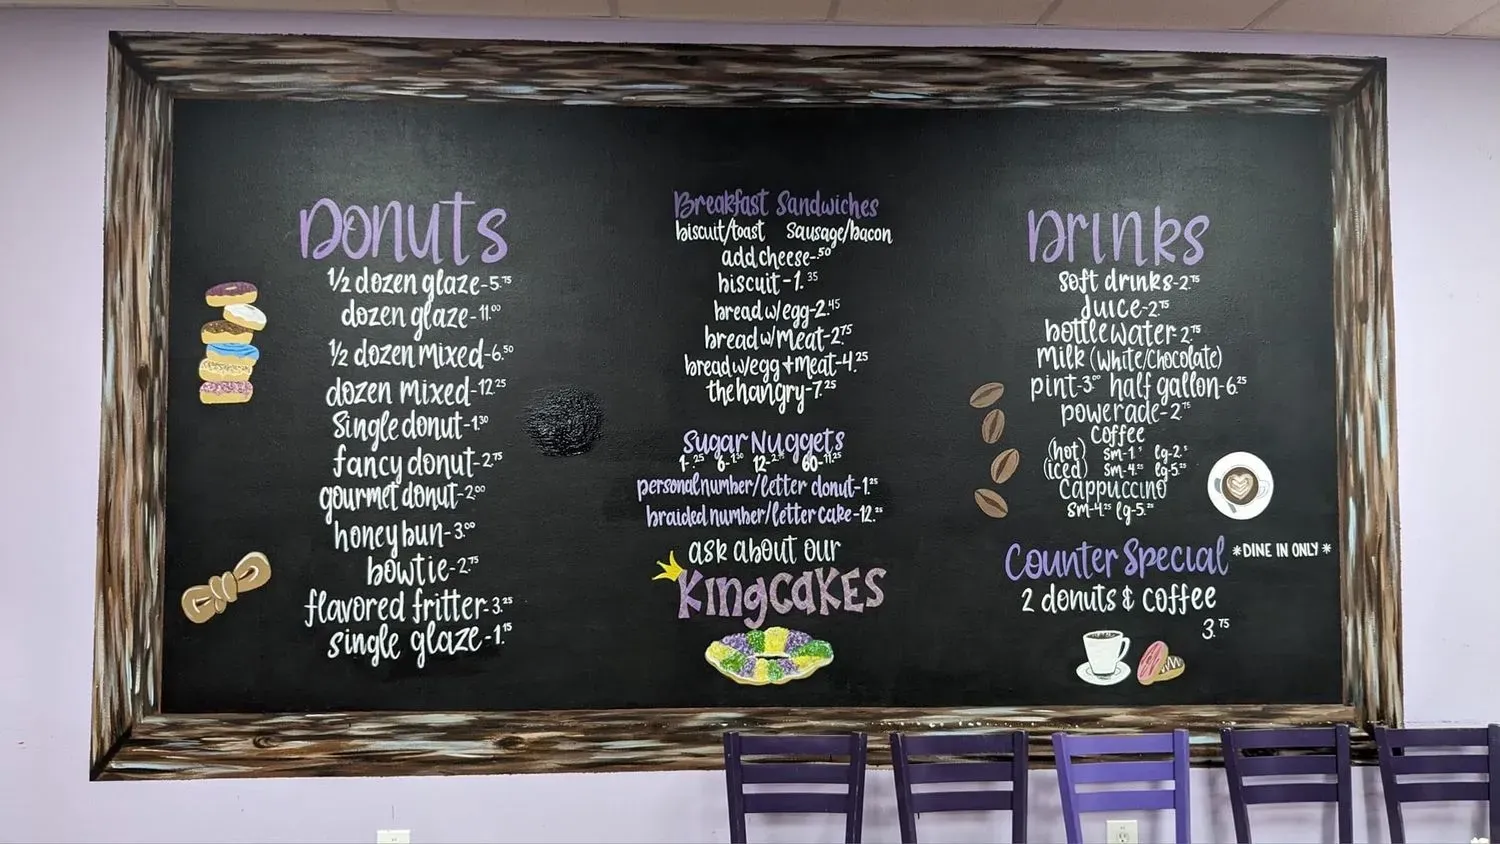 Donuts
1/2 dozen glaze-5.75
dozen glaze-11.00
1/2 dozen mixed-6.50
dozen mixed-12.25
Single donut-1.30
fancy donut-2.75
gourmet donut-2.00
honey bun-3.00
bowtie-2.75
flavored fritter-3.25
single glaze-1.15
Breakfast Sandwiches
biscuit/toast Sausage/bacon
add cheese-.50
biscuit-1.35
bread w/egg-2.45
bread w/meat-2.75
bread w/egg+meat-4.25
the hangry-7.25
Sugar Nuggets
1-.25 6-1.50 12-2. 60-11.25
personal number/letter donut-1.25
braided number/letter cake-12.25
ask about our
KingCAKES
Drinks
soft drinks-2.75
Juice-2.75
bottle water-2.75
milk (white/chocolate)
pint-3.00 half gallon-6.25
powerade-2.75
Coffee
(hot) sm-1. lg-2.
(iced) sm-4.25 lg-5.25
Cappuccino
sm-4.25 lg-5.25
Counter Special *DINE IN ONLY*
2 donuts & coffee
3.75